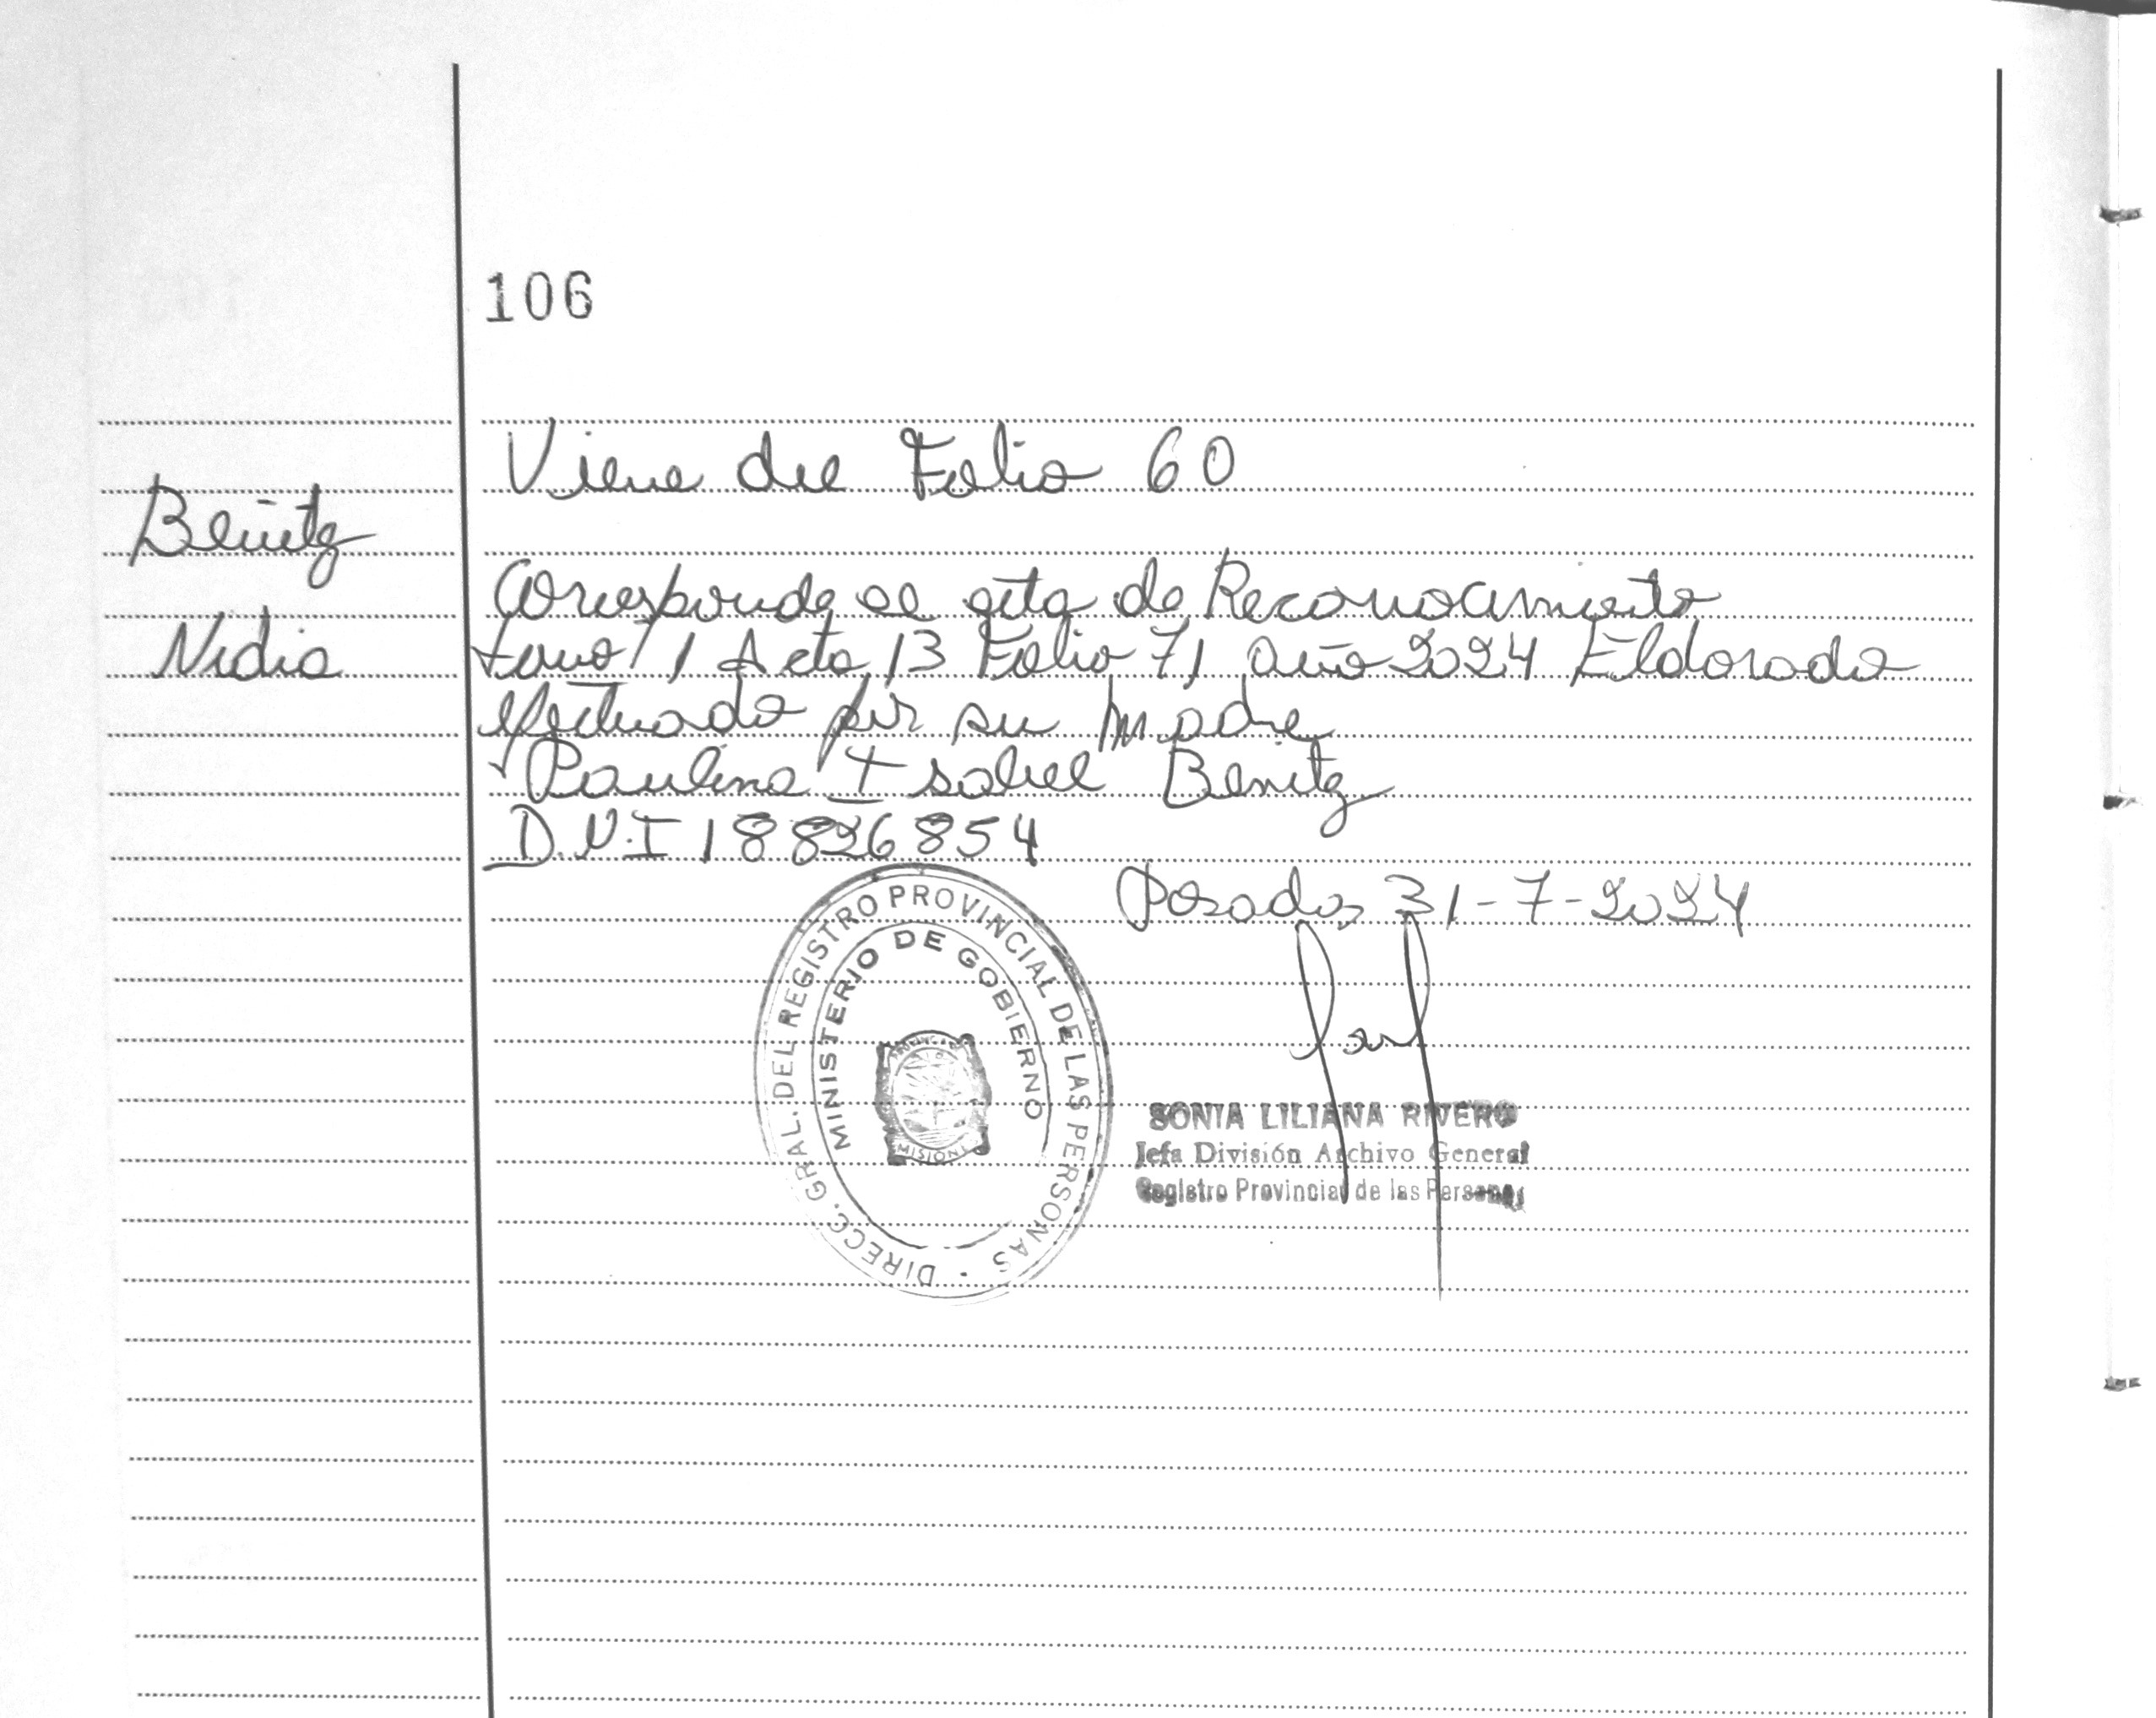 106
Viene del Folio 60
Benitez
Nidia
Corresponde al acta de Reconocimiento
tomo 1 Acta 13 Folio 71 año 2024 Eldorado
efectuado por su madre
Paulina Isabel Benitez
D.N.I 18826854
Posadas 31-7-2024
DIRECC. GRAL. DEL REGISTRO PROVINCIAL DE LAS PERSONAS
MINISTERIO DE GOBIERNO
PROVINCIA DE
MISIONES
SONIA LILIANA RIVERO
Jefa División Archivo General
Registro Provincial de las Personas